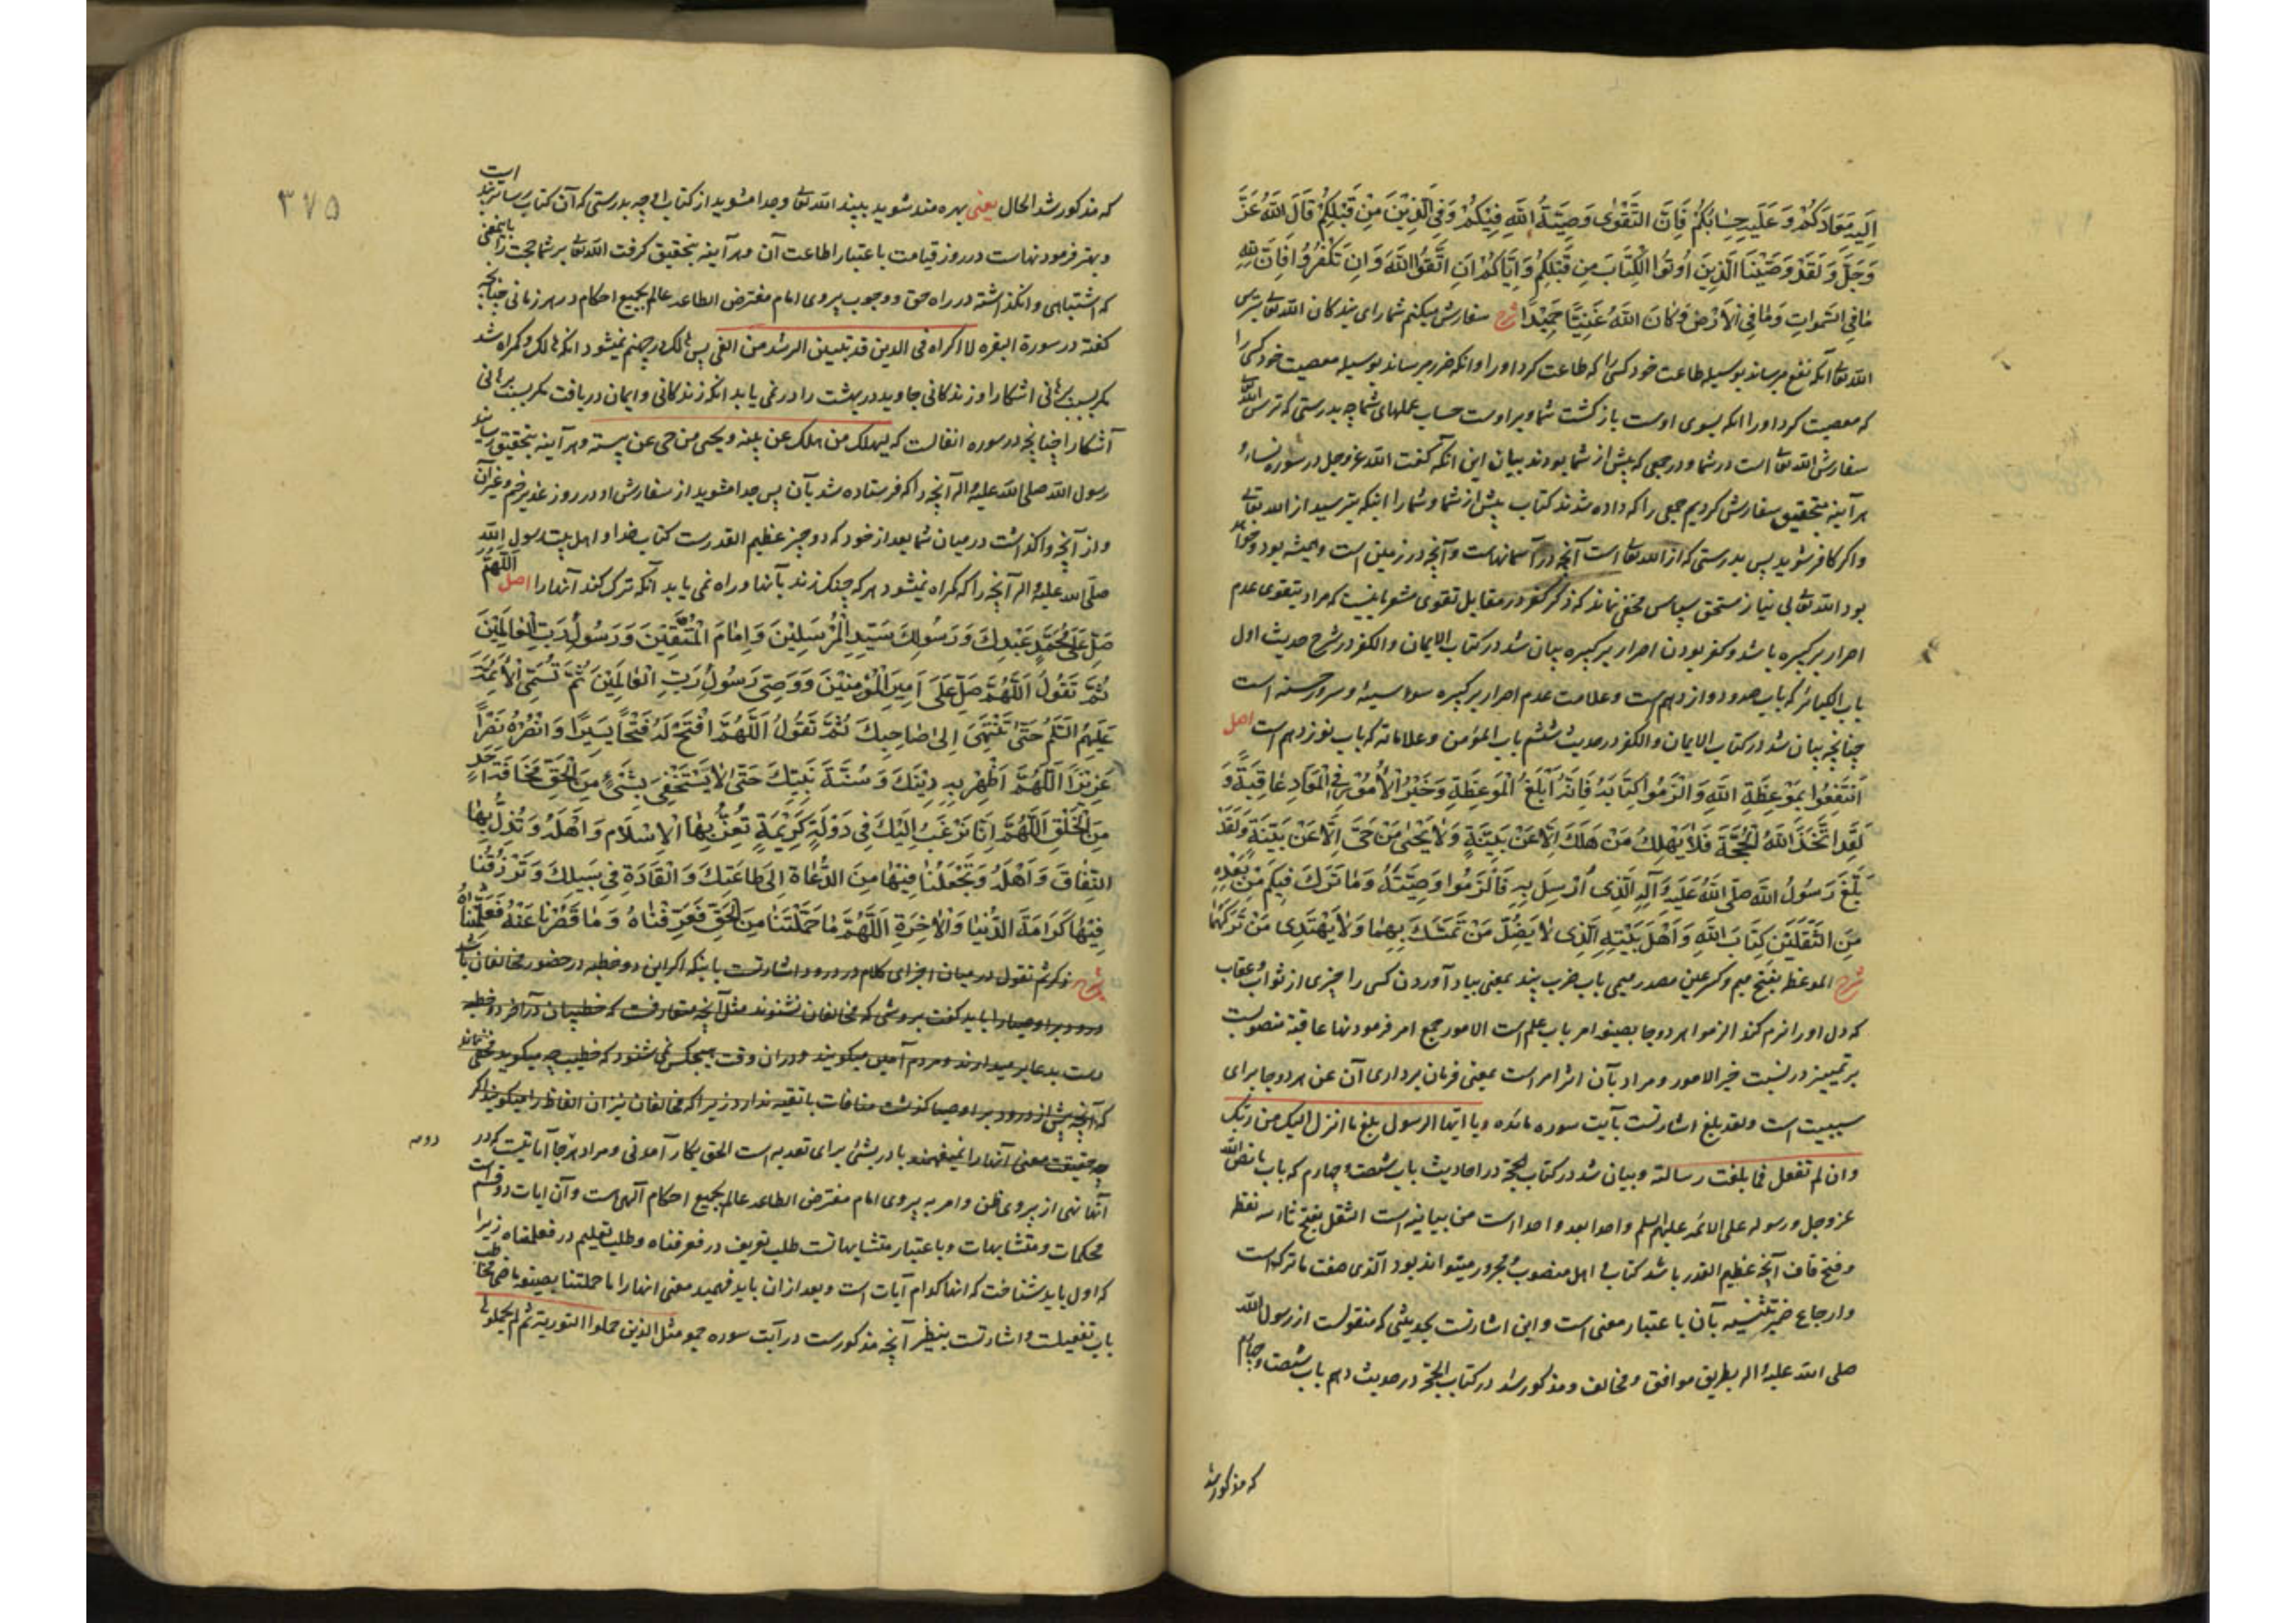 اِلَيهِ مَعَادَكُمْ وَ عَلَيهِ حِسٰابُكُمْ فَاِنَّ التَّقْوٰى وَصِيَّةُ اللّٰهِ فِيْكُمْ وَفِي الَّذِيْنَ مِنْ قَبْلِكُمْ قَالَ اللّٰهُ عَزَّ
وَجَلَّ وَ لَقَدْ وَصَّيْنَا الَّذِينَ اُوتُوا الْكِتَابَ مِن قَبْلِكُمْ وَ اِيَّاكُمْ اَنِ اتَّقُوا اللّٰهَ وَ اِن تَكْفُرُوْا فَاِنَّ لِلّٰهِ
مٰا فِي السَّمٰوَاتِ وَ مٰا فِي الْاَرْضِ وَ كَانَ اللّٰهُ غَنِيًّا حَمِيْدًا شرح سفارش ميكنم شما را اى بندكان الله تعالى بترس
الله تعالى آنكه نفع ميرساند بوسيله طاعت خود كسى را كه طاعت كرد او را و انكه ضرر ميرساند بوسيله معصيت خود كسى را
كه معصيت كرد او را انكه بسوى اوست باز كشت شما و بر اوست حساب عملهاى شما چه بدرستى كه ترس الله
سفارش الله تعالى است در شما و در جمعى كه پيش از شما بودند بيان اين آنكه كفت الله عز و جل در سوره نساء
هر آينه بتحقيق سفارش كرديم جمعى را كه داده شدند كتاب پيش از شما و شما را اينكه بترسيد از الله تعالى
و اكر كافر شويد پس بدرستى كه از الله تعالى است آنچه در آسمانهاست و آنچه در زمين است و هميشه بود و خواهد
بود الله تعالى بى نياز مستحق سپاس مخفى نماند كه ذكر كفر در مقابل تقوى مشعر باينست كه مراد بتقوى عدم
اصرار بر كبيره باشد و كفر بودن اصرار بر كبيره بيان شد در كتاب الايمان و الكفر در شرح حديث اول
باب الكبائر كه باب صد و دوازدهم است و علامت عدم اصرار بر كبيره سوء سيئه و سرور حسنه است
چنانچه بيان شد در كتاب الايمان و الكفر در حديث ششم باب المؤمن و علاماته كه باب نوزدهم است اصل
اِنْتَفِعُوا بِمَوْعِظَةِ اللّٰهِ وَ الْزَمُوا كِتَابَهُ فَاِنَّهُ اَبْلَغُ الْمَوعِظَةِ وَ خَيْرُ الْاُمُوْرِ فِي الْمَعَادِ عٰاقِبَةً وَ
لَقَدِ اتَّخَذَ اللّٰهُ الْحُجَّةَ فَلٰا يَهْلِكُ مَنْ هَلَكَ اِلَّا عَنْ بَيِّنَةٍ وَ لٰا يَحْيٰى مَنْ حَىَّ اِلَّا عَنْ بَيِّنَةٍ وَ لَقَدْ
بَلَّغَ رَسُوْلُ اللّٰه صَلَّى اللّٰهُ عَلَيهِ وَ آلِهِ الَّذِى اُرْسِلَ بِهِ فَالْزَمُوا وَصِيَّتَهُ وَ مٰا تَرَكَ فِيكُم مِنْ بَعْدِهِ
مِنَ الثَّقَلَيْنِ كِتَابَ اللّٰهِ وَ اَهْلَ بَيْتِهِ الَّذِى لٰا يَضِلُّ مَنْ تَمَسَّكَ بِهِمٰا وَ لٰا يَهْتَدِى مَنْ تَرَكَهُمٰا
شرح الموعظه بفتح ميم و كسر عين مصدر ميمى باب ضرب پند بمعنى بياد آوردن كسى را چيزى از ثواب و عقاب
كه دل او را نرم كند الزموا هر دو جا بصيغه امر باب علم است الامور جمع امر فرمودنها عاقبة منصوبست
بر تمييز در نسبت خير الامور و مراد بآن اثر امر است بمعنى فرمان بردارى آن عن هر دو جا براى
سببيت است و لقد بلغ اشارتست بآيت سوره مائده و يا ايها الرسول بلغ ما انزل اليك من ربك
و ان لم تفعل فما بلغت رسالته و بيان شد در كتاب الحجة در احاديث باب شصت و چهارم كه باب ما نص الله
عز و جل و رسوله على الائمه عليهم السلم واحدا بعد واحدا است من بيانيه است الثقل بفتح ثاء سه نقطه
و فتح قاف آنچه عظيم القدر باشد كتاب و اهل منصوب و مجرور ميتواند بود الذى صفت ما ترك است
و ارجاع ضمير تثنيه بآن باعتبار معنى است و اين اشارتست بحديثى كه منقولست از رسول الله
صلى الله عليه و اله بطريق موافق و مخالف و مذكور شد در كتاب الحجة در حديث دهم باب شصت و چهارم
كه مذكور شد
٣٧٥
كه مذكور شد الحال يعنى بهره مند شويد بپند الله تعالى و جدا مشويد از كتاب او چه بدرستى كه آن كتاب رساترين پند است
و بهتر فرمودنهاست در روز قيامت باعتبار اطاعت آن و هر آينه بتحقيق كرفت الله تعالى بر شما حجت را باينمعنى
كه اشتباهى وانكذاشته در راه حق و وجوب پيروى امام مفترض الطاعه عالم بجميع احكام در هر زمانى چنانچه
كفته در سورة البقره لا اكراه فى الدين قد تبين الرشد من الغى پس هالك در جهنم نميشود انكه هالك و كمراه شد
مكر بسبب برهانى اشكارا و زندكانى جاويد در بهشت را در نمى يابد انكه زندكانى و ايمان دريافت مكر بسبب برهانى
آشكارا چنانچه در سوره انفالست كه ليهلك من هلك عن بينه و يحيى من حى عن بينة و هر آينه بتحقيق رسانيد
رسول الله صلى الله عليه و اله آنچه را كه فرستاده شد بآن پس جدا مشويد از سفارش او در روز غدير خم و غير آن
و از آنچه واكذاشت در ميان شما بعد از خود كه دو چيز عظيم القدرست كتاب خدا و اهل بيت رسول الله
صلى الله عليه و اله آنچه را كه كمراه نميشود هر كه چنك زند بآنها و راه نمى يابد آنكه ترك كند آنها را اصل اَللّٰهُمَّ
صَلِّ عَلٰى مُحَمَّدٍ عَبْدِكَ وَ رَسُولِكَ سَيِّدِ الْمُرْسَلِيْنَ وَ اِمٰامِ الْمُتَّقِيْنَ وَ رَسُوْلِ رَبِّ الْعٰالَمِيْنَ
ثُمَّ تَقُولُ اَللّٰهُمَّ صَلِّ عَلٰى اَمِيْرِ الْمُؤْمِنِيْنَ وَ وَصِىِّ رَسُوْلِ رَبِّ الْعٰالَمِيْنَ ثُمَّ تُسَمِّى الْاَئِمَّةَ
عَلَيْهِمُ السَّلَمُ حَتّٰى تَنْتَهِىَ اِلٰى صٰاحِبِكَ ثُمَّ تَقُوْلُ اَللّٰهُمَّ افْتَحْ لَهُ فَتْحًا يَسِيْرًا وَ انْصُرْهُ نَصْرًا
عَزِيْزًا اَللّٰهُمَّ اَظْهِرْ بِهِ دِيْنَكَ وَ سُنَّةَ نَبِيِّكَ حَتّٰى لٰا يَسْتَخْفِىَ بِشَىْءٍ مِنَ الْحَقِّ مَخَافَةَ اَحَدٍ
مِنَ الْخَلْقِ اَللّٰهُمَّ اِنَّا نَرْغَبُ اِلَيْكَ فِى دَوْلَةٍ كَرِيْمَةٍ تُعِزُّ بِهَا الْاِسْلٰامَ وَ اَهْلَهُ وَ تُذِلُّ بِهَا
النِّفٰاقَ وَ اَهْلَهُ وَ تَجْعَلُنٰا فِيْهٰا مِنَ الدُّعَاةِ اِلٰى طٰاعَتِكَ وَ الْقَادَةِ فِى سَبِيلِكَ وَ تَرْزُقُنٰا
فِيْهٰا كَرَامَةَ الدُّنْيٰا وَ الْاٰخِرَةِ اَللّٰهُمَّ مٰا حَمَّلْتَنَا مِنَ الْحَقِّ فَعَرِّفْنٰاهُ وَ مٰا قَصُرْنٰا عَنْهُ فَعَلِّمْنٰاهُ
شرح ذكر ثم تقول در ميان اجزاى كلام در درود اشارتست باينكه اكر اين دو خطبه در حضور مخالفان باشد
درود بر اوصيا را بايد كفت بروشى كه مخالفان نشنوند مثل آنچه متعارفست كه خطيبان در آخر دو خطبه
دست بدعا بر ميدارند و مردم آمين ميكويند و در ان وقت هيچكس نمى شنود كه خطيب چه ميكويد مخفى نماند
كه آنچه پيش از درود بر اوصيا كذشت منافات با تقيه ندارد زيرا كه مخالفان نيز ان الفاظ را ميكويند اكر
چه حقيقت معنى آنها را نميفهمند با در بشئ براى تعديه است الحق بكار آمدنى و مراد هر جا آياتيست كه در
آنها نهى از پيروى ظن و امر به پيروى امام مفترض الطاعه عالم بجميع احكام آلهى است و آن ايات دو قسم است
محكمات و متشابهات و باعتبار متشابهاتست طلب تعريف در فعرفناه و طلب تعليم در فعلمناه زيرا
كه اول بايد شناخت كه انها كدام آيات است و بعد از ان بايد فهميد معنى انها را ما حملتنا بصيغه ماضى مخاطب
باب تفعيلست و اشارتست بنظير آنچه مذكورست در آيت سوره جمعه مثل الذين حملوا التورية ثم لم يحملوها